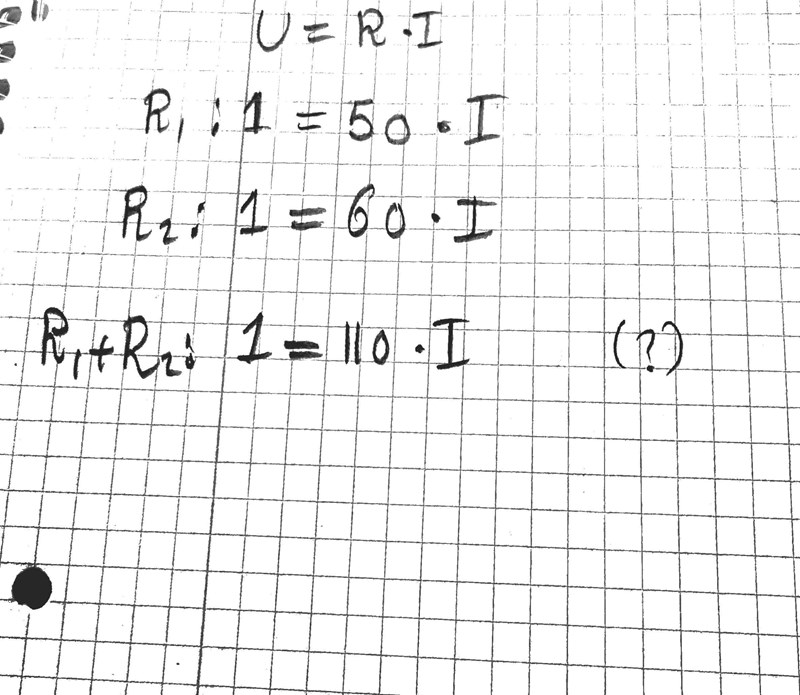 U = R · I
R₁ : 1 = 50 · I
R₂ : 1 = 60 · I
R₁+R₂ : 1 = 110 · I (?)